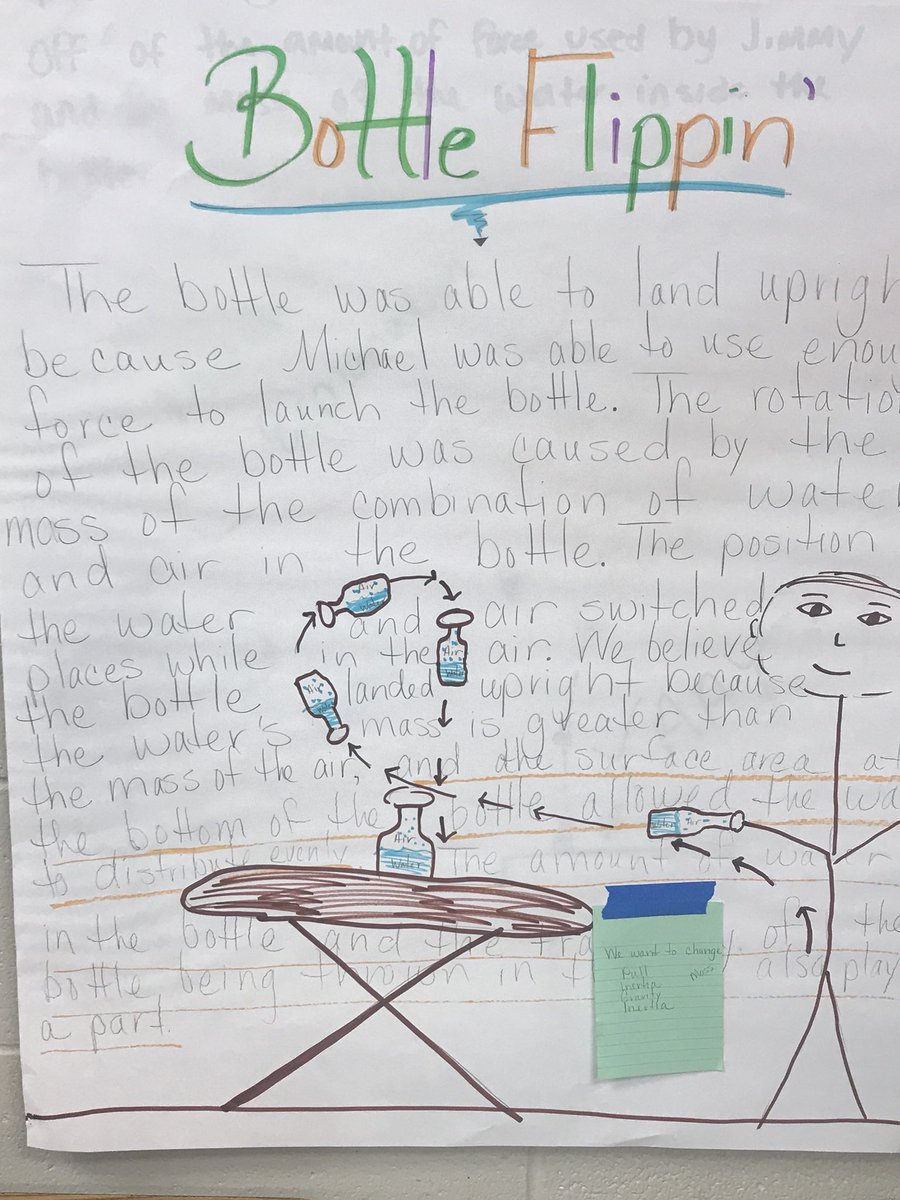 off of the amount of force used by Jimmy
and of the water inside the
Bottle Flippin'
The bottle was able to land uprigh
because Michael was able to use enou
force to launch the bottle. The rotatio
of the bottle was caused by the
mass of the combination of wate
and air in the bottle. The position
the water and air switched
places while in the air. We believe
the bottle landed upright because
the water's mass is greater than
the mass of the air, and the surface area at
the bottom of the bottle allowed the wa
to distribute evenly. The amount of water
in the bottle and the of the
bottle being thrown in also play
a part.
Air
Water
Air
Water
Air
Air
Water
Water
Air
We want to change
Pull Mass
Inertia
Gravity
Inertia